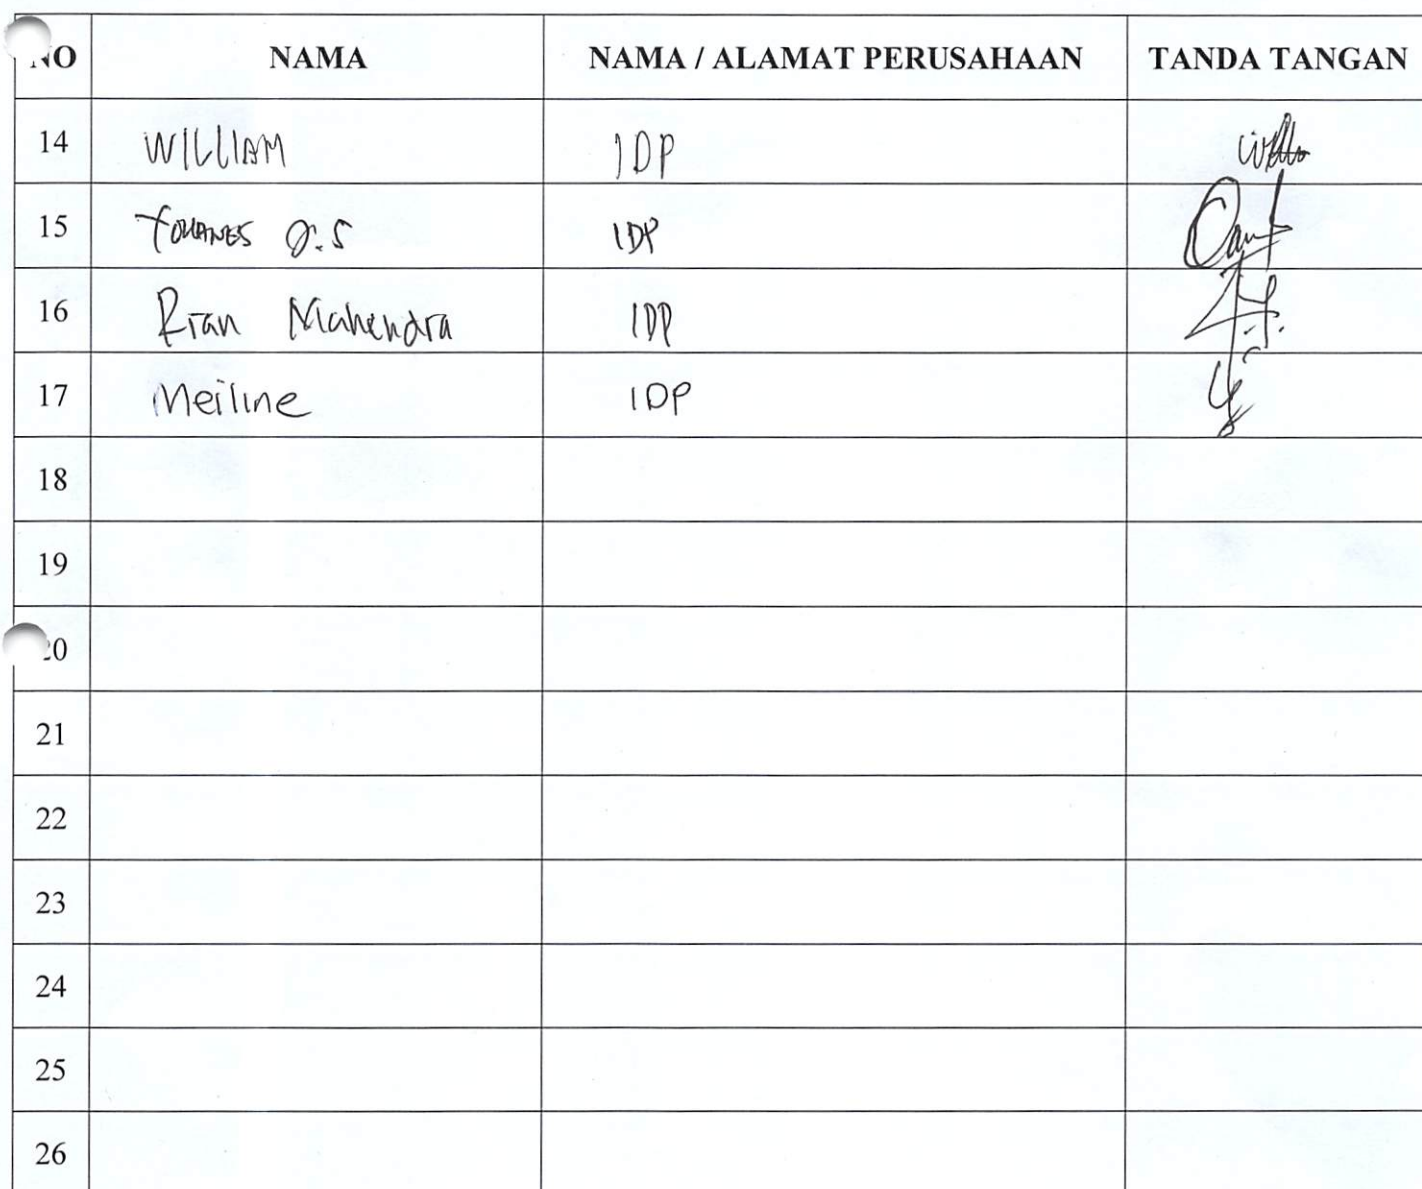 NO NAMA NAMA / ALAMAT PERUSAHAAN TANDA TANGAN
14 WILLIAM IDP
15 YOHANES J.S IDP
16 Rian Mahendra IDP
17 Meiline IDP
18
19
20
21
22
23
24
25
26